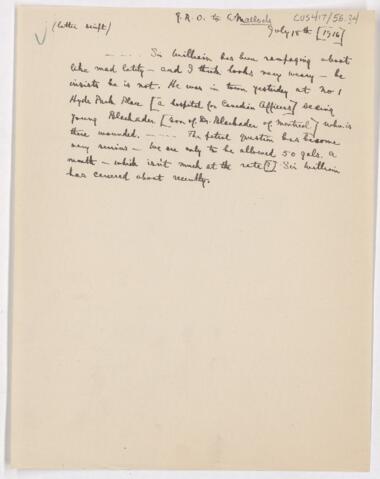 (letter swift)
G.R.O. to C. Matlock
CUS417/56.34
July 18th [1916]
– . – . Sir William has been rampaging about
like mad lately – and I think looks very weary – he
insists he is not. He was in town yesterday at No 1
Hyde Park Place [a hospital for Canadian Officers] seeing
young Blackader [son of Dr. Blackader of Montreal] who is
there wounded. – . – . The petrol question has become
very serious – We are only to be allowed 50 gals. a
month – which isn't much at the rate [?] Sir William
has careered about recently.